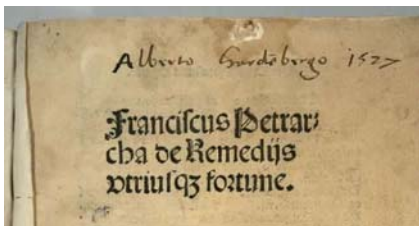 Alberto Hardēbergo 1527
Franciscus Petrar⸗
cha de Remedijs
vtriusqꝫ fortune.